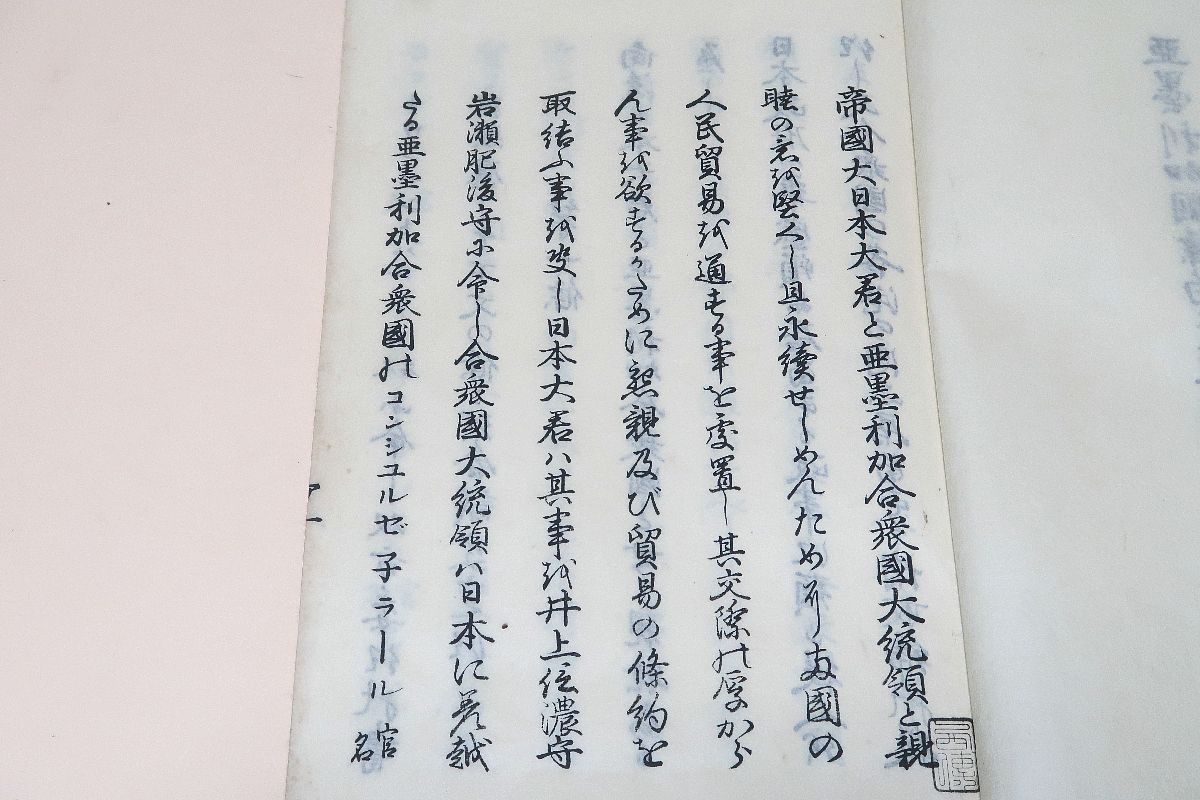 帝國大日本大君と亜墨利加合衆國大統領と親
睦の意を堅くし且永續せしめんために両國の
人民貿易を通する事を処置し其交際の厚から
ん事を欲するかために懇親及び貿易の條約を
取結ふ事を決し日本大君ハ其事を井上信濃守
岩瀬肥後守に命し合衆國大統領ハ日本に差越
たる亜墨利加合衆國のコンシユルゼ子ラール官名